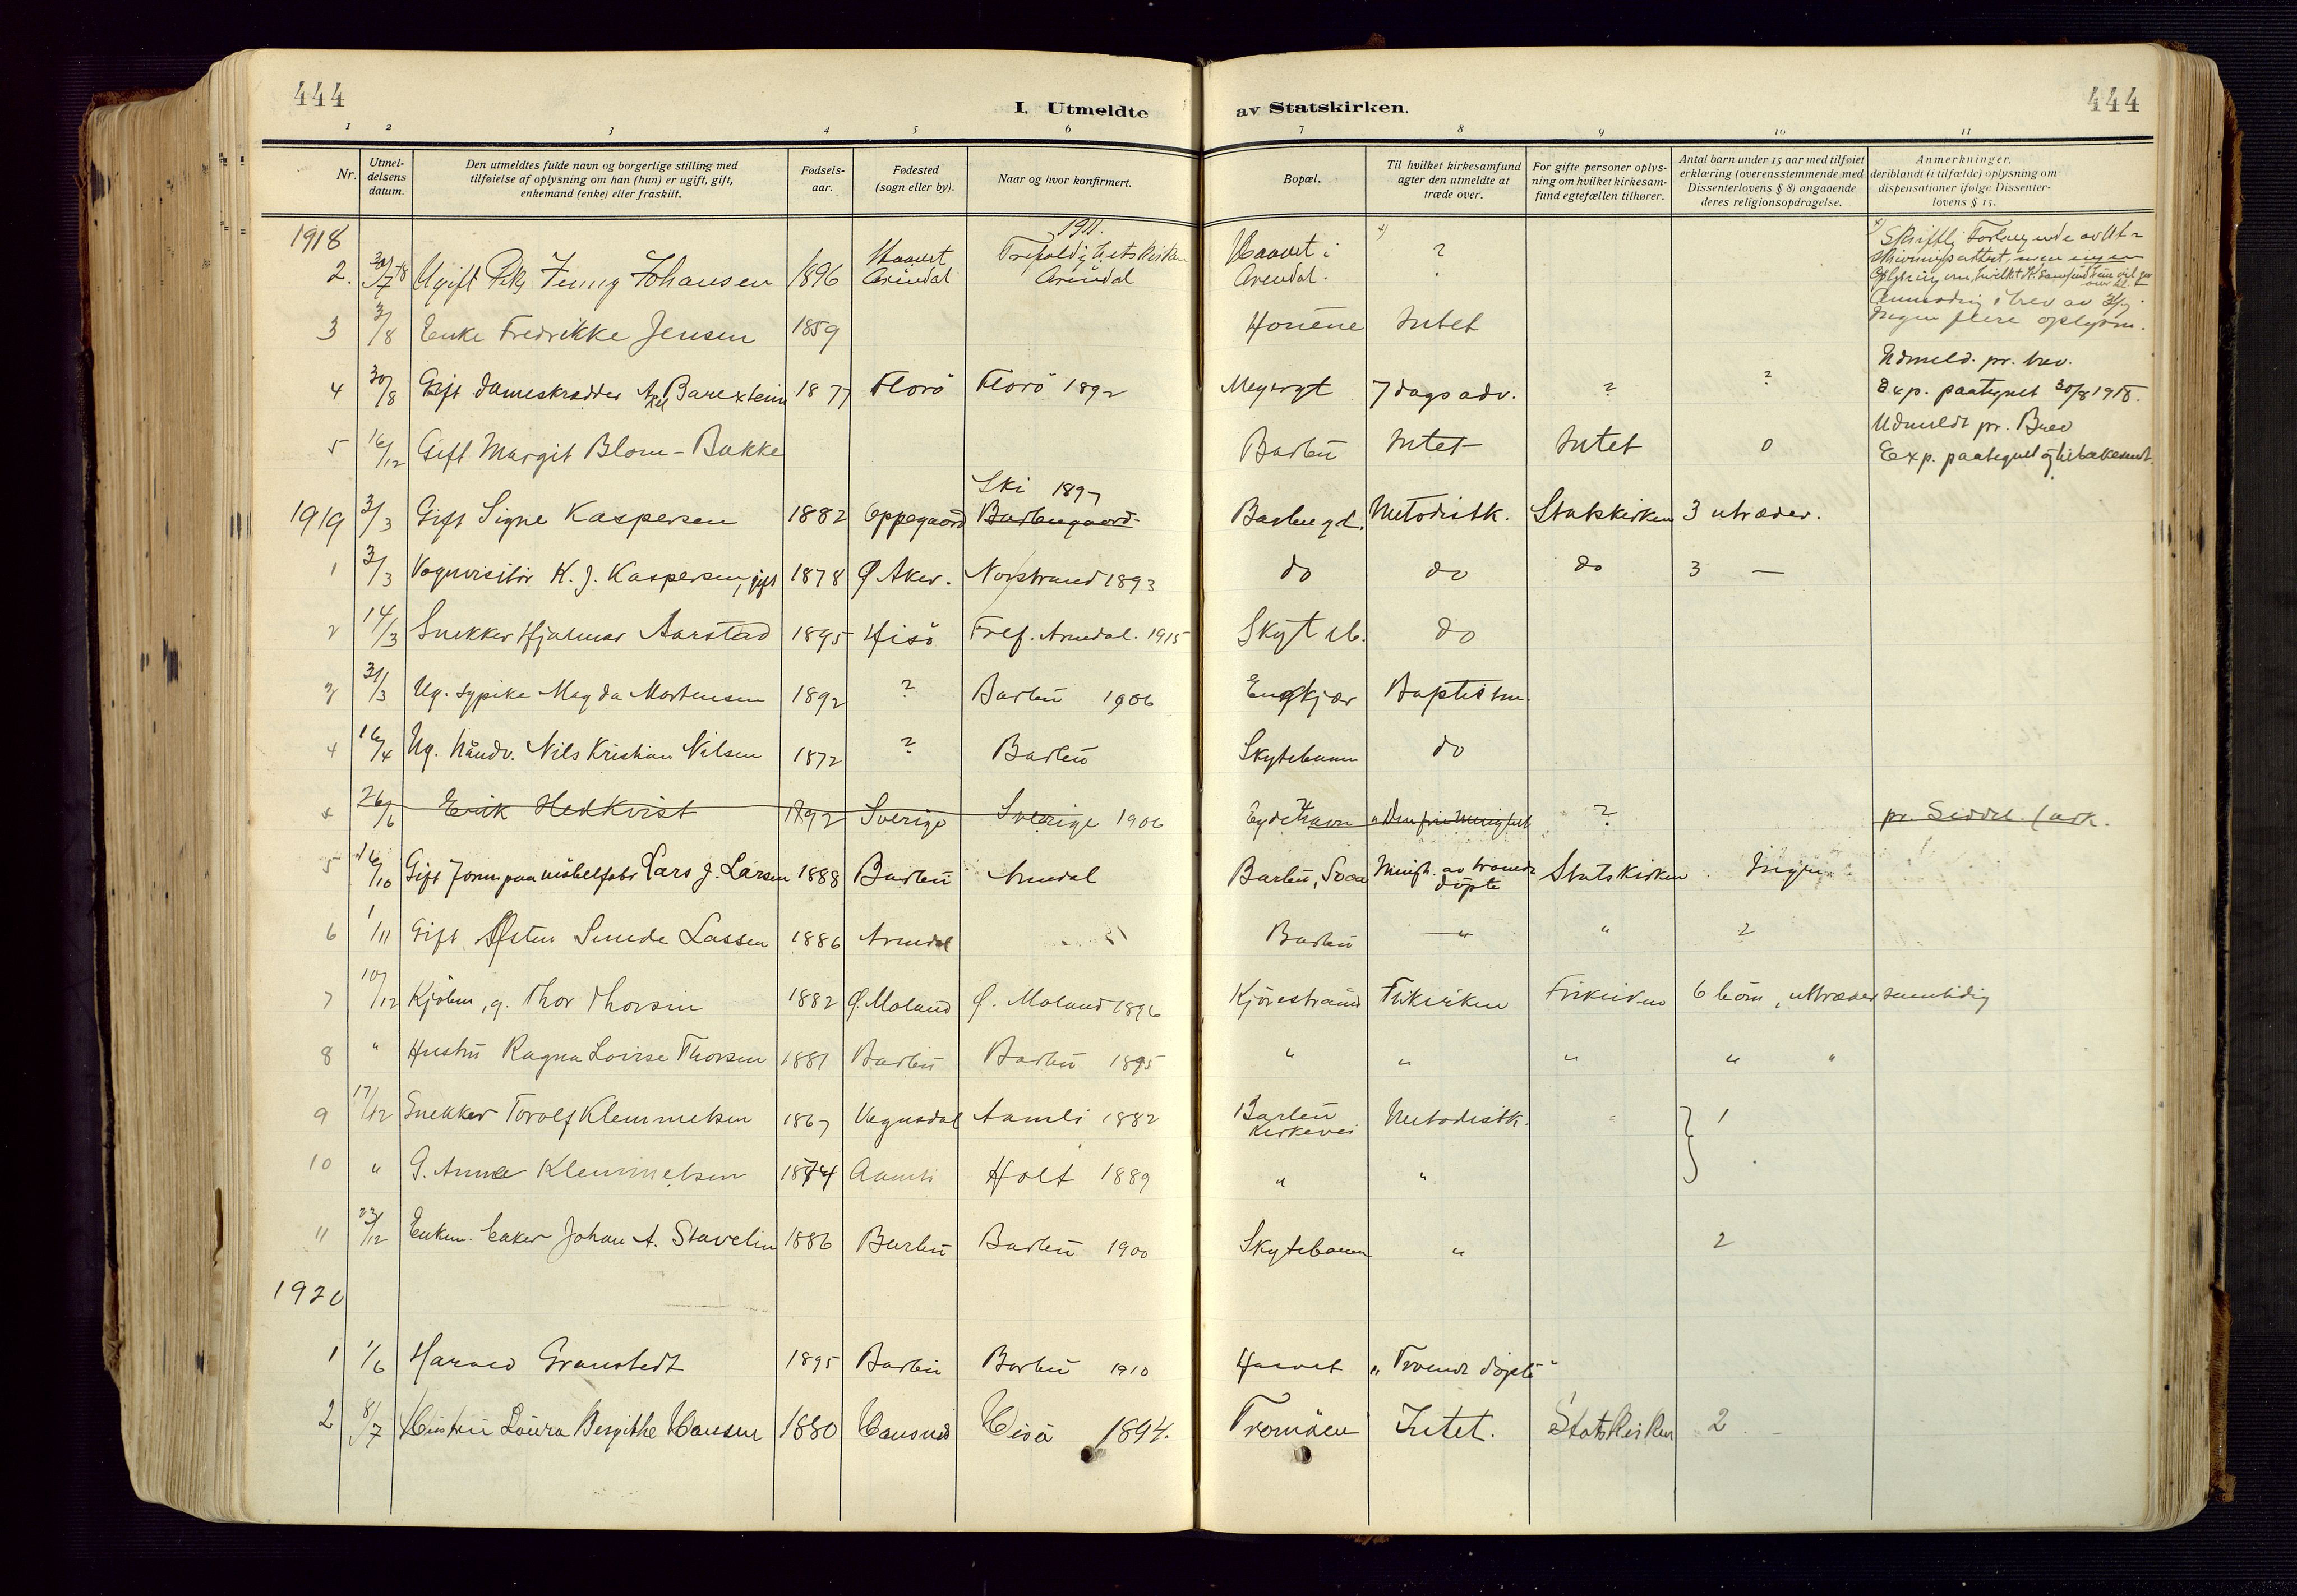 444
I. Utmeldte av Statskirken.
444
1 2 3 4 5 6 7 8 9 10 11
Nr.
Utmel-
delsens
datum.
Den utmeldtes fulde navn og borgerlige stilling med
tilføielse af oplysning om han (hun) er ugift, gift,
enkemand (enke) eller fraskilt.
Fødsels-
aar.
Fødested
(sogn eller by).
Naar og hvor konfirmert.
Bopæl.
Til hvilket kirkesamfund
agter den utmeldte at
træde over.
For gifte personer oplys-
ning om hvilket kirkesam-
fund egtefællen tilhører.
Antal barn under 15 aar med tilføiet
erklæring (overensstemmende med
Dissenterlovens § 8) angaaende
deres religionsopdragelse.
Anmerkninger,
deriblandt (i tilfælde) oplysning om
dispensationer ifølge Dissenter-
lovens § 15.
1918
2. 30/7 18 Ugift Jenny Johansen 1896 Haavet Arendal 1911. Trefoldighetskirken Arendal Haavet i Arendal. ?
3 3/8 Enke Fredrikke Jensen 1859 Intet
4 30/8 Gift dameskrædder 1877 Florö Florö 1892 7 dags adv. ? ? Udmeld. pr. brev. Exp. paategnet 30/8 1918.
5 16/12 Gift Margit Blom-Bakke Barbu Intet Intet 0 Udmeldt pr. Brev Exp. paategnet og tilbakesendt.
1919 3/3 Gift Signe Kaspersen 1882 Oppegaard Ski 1897 Barbugt. Metodistk. Statskirken 3 utræder.
1 3/3 Vognvisitör K. J. Kaspersen, gift 1878 Ø. Aker. Norstrand 1893 do do do 3 —
2 14/3 Snekker Hjalmar Aarstad 1895 Hisö Tref. Arendal. 1915 Skyteb. do
3 31/3 Ug. sypike Magda Mortensen 1892 ? Barbu 1906 Engkjær Baptistm.
4 16/4 Ug. håndv. Nils Kristian Nilsen 1872 ? Barbu Skytebanen do
26/6 Erik Hedkvist 1892 Sverige Sverige 1906 Eydehavn "Den frie Menighet ?
5 16/10 Gift Lars J. Larsen 1888 Barbu Arendal Barbu, Menigh. av troende döpte Statskirken Ingen
6 1/11 Gift Østen Smede Lassen 1886 Arendal Barbu — " " 2
7 10/12 Kjölm, g. Thor Thorsen 1882 Ø. Moland Ø. Moland 1896 Kjörestrand Frikirken Frikirken 6 börn, uttræder samtidig
8 " Hustru Ragna Lovise Thorsen 1881 Barbu Barbu 1895 " " " " "
9 17/12 Snekker Torolf Klemmetsen 1867 Vegusdal Aamli 1882 Barbu Kirkevei Metodistk. " 1
10 " G. Anna Klemmetsen 1874 Aamli Holt 1889 " "
11 23/12 Enkem. baker Johan A. Stavelin 1886 Barbu Barbu 1900 Skytebanen " 2
1920
1 1/6 Harald Granstedt 1895 Barbu Barbu 1910 Haavet "Troende döpte"
2 8/7 Hustru Laura Bergithe Hansen 1880 Hisö 1894. Tromöen Intet. Statskirken 2